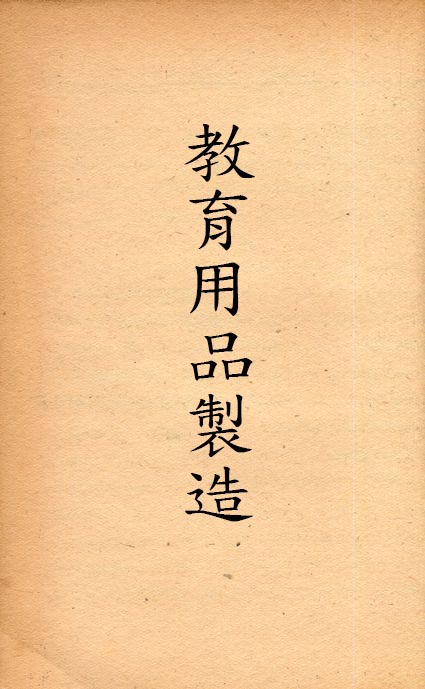 教育用品製造